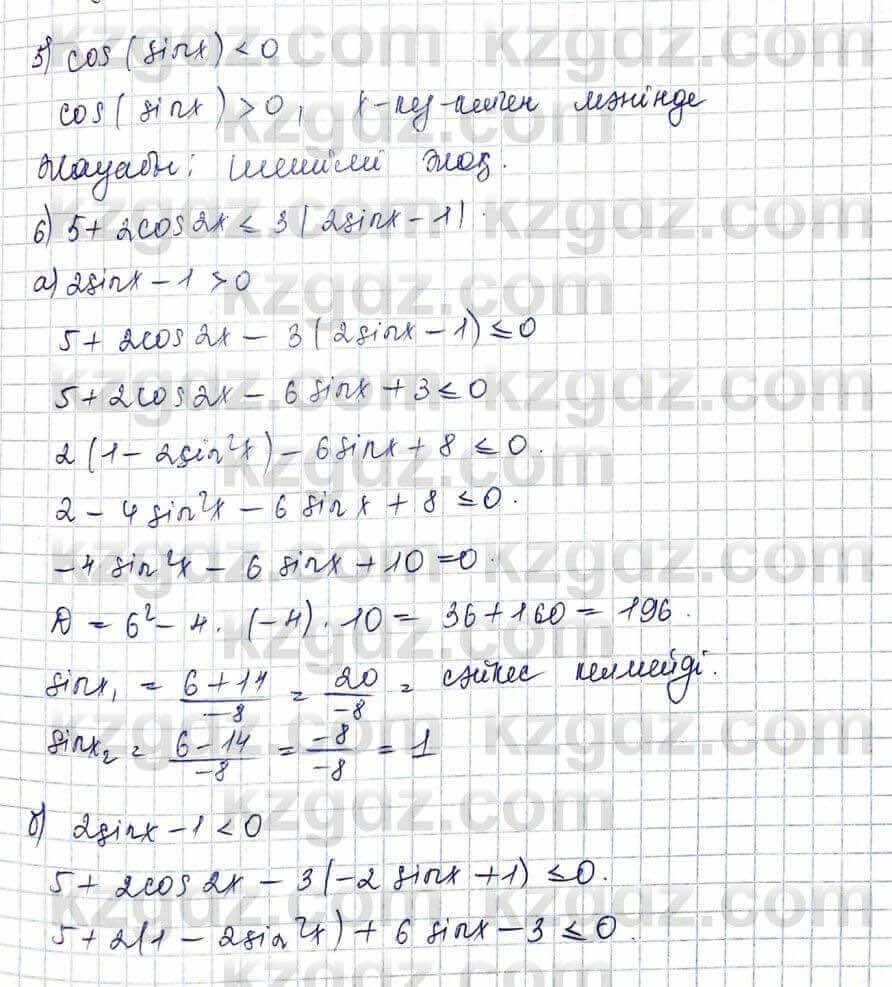 5) cos(sinx) < 0
cos(sinx) > 0, x-кез-келген мәнінде
Жауабы: Шешімі жоқ.
6) 5 + 2cos2x ≤ 3|2sinx - 1|.
а) 2sinx - 1 > 0
5 + 2cos2x - 3(2sinx - 1) ≤ 0
5 + 2cos2x - 6sinx + 3 ≤ 0
2(1 - 2sin²x) - 6sinx + 8 ≤ 0.
2 - 4sin²x - 6sinx + 8 ≤ 0.
-4sin²x - 6sinx + 10 = 0.
D = 6² - 4·(-4)·10 = 36 + 160 = 196.
sinx₁ = (6+14)/(-8) = 20/(-8) = сәйкес келмейді.
sinx₂ = (6-14)/(-8) = (-8)/(-8) = 1
б) 2sinx - 1 < 0
5 + 2cos2x - 3(-2sinx + 1) ≤ 0.
5 + 2(1 - 2sin²x) + 6sinx - 3 ≤ 0.
kzgdz.com